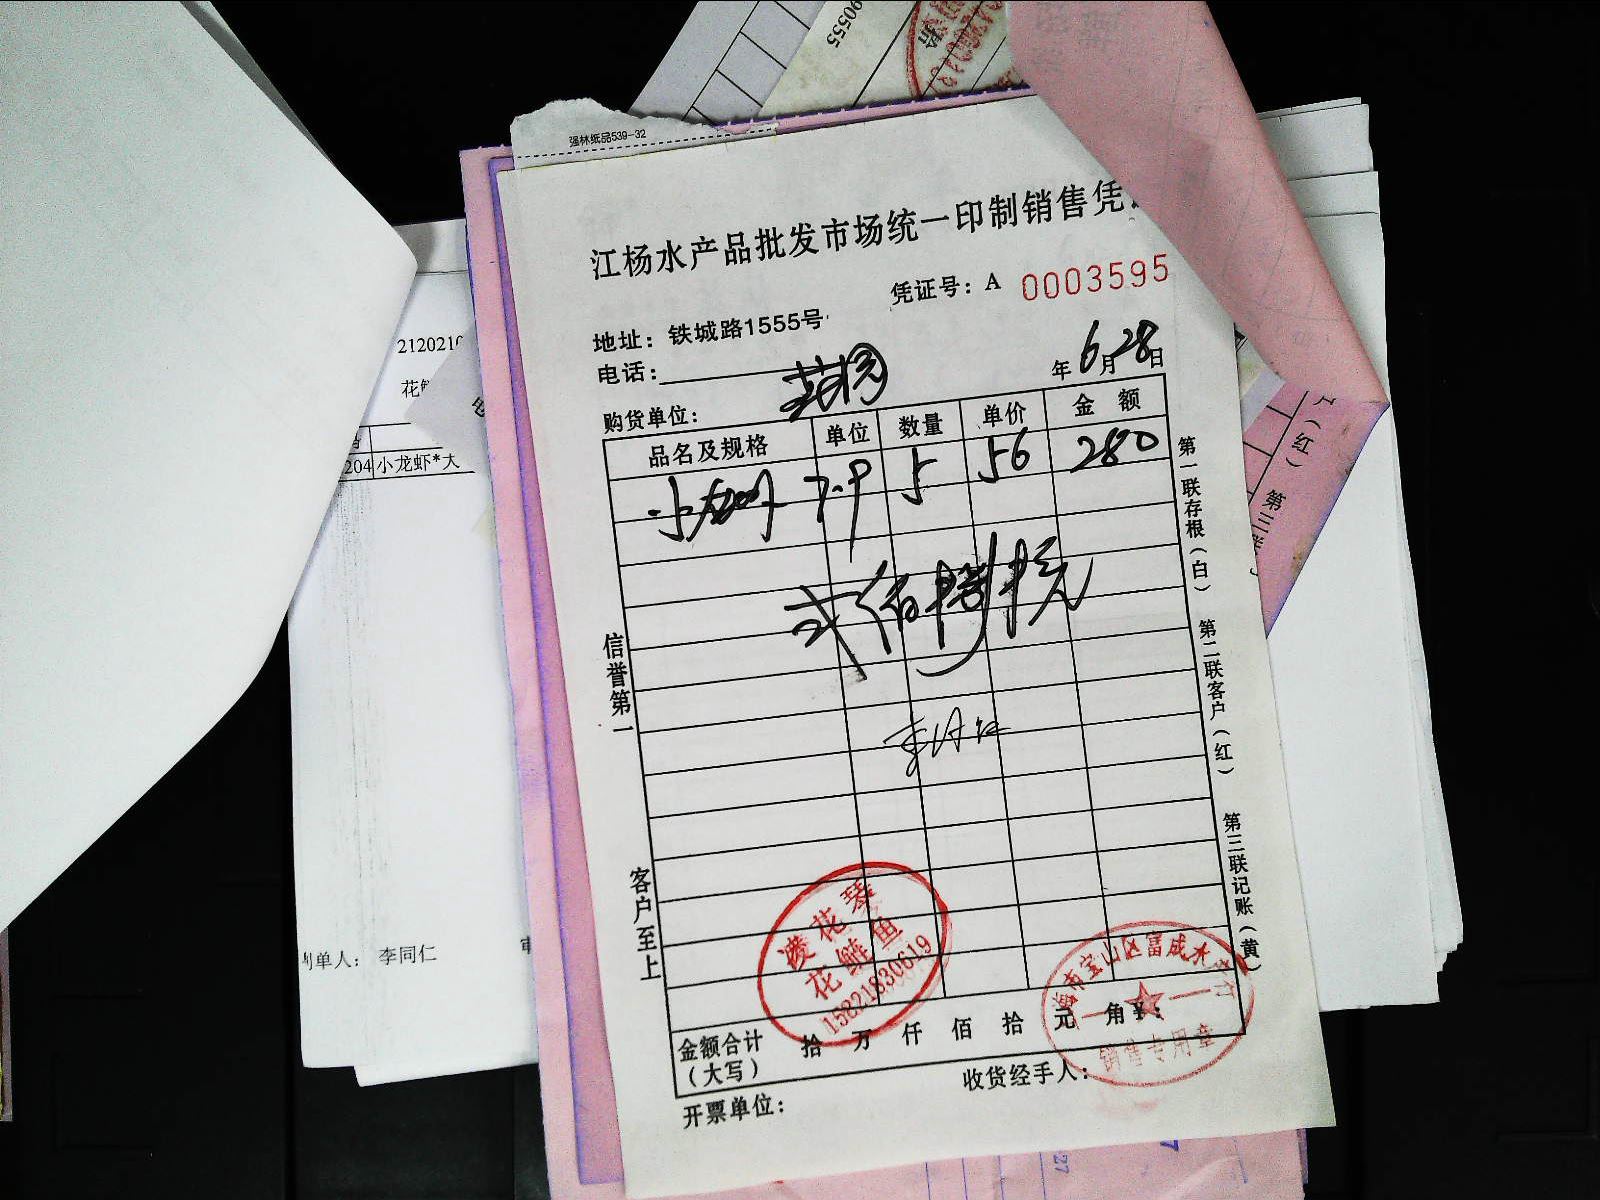 90555
强林纸品539-32
江杨水产品批发市场统一印制销售凭
凭证号：A 0003595
地址：铁城路1555号
电话：
年6月28日
购货单位：
品名及规格 单位 数量 单价 金额
小龙虾 7-9 5 56 280
弍佰捌拾元
信誉第一
客户至上
第一联存根（白）
第二联客户（红）
第三联记账（黄）
凌花琴
花鲢鱼
15821830619
海市宝山区富成水产行
销售专用章
金额合计（大写） 拾 万 仟 佰 拾 元 角 ¥：
收货经手人：
开票单位：
212021
花
204 小龙虾*大
制单人： 李同仁
（红） 第三联
27